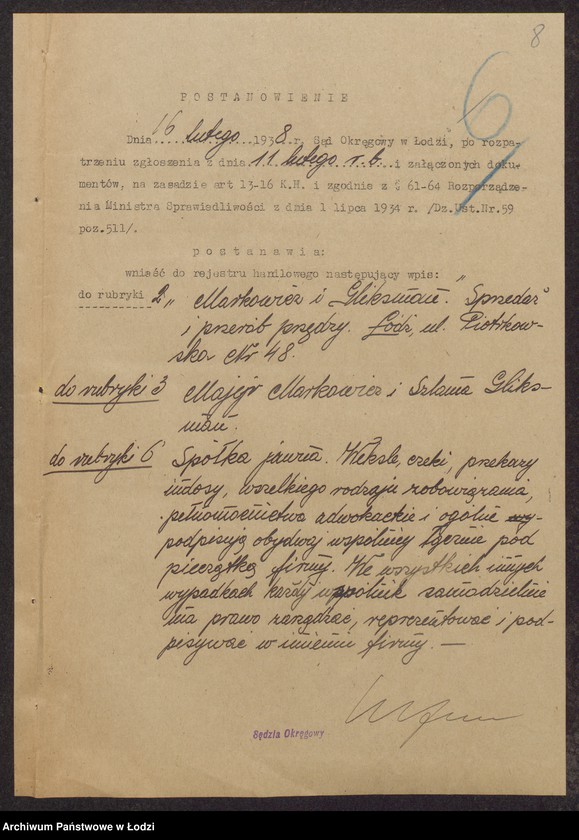 8
6
POSTANOWIENIE
Dnia 16 lutego 1938 r, Sąd Okręgowy w Łodzi, po rozpa-
trzeniu zgłoszenia z dnia 11 lutego r. b. i załączonych doku-
mentów, na zasadzie art 13-16 K.H. i zgodnie z § 61-64 Rozporządze-
nia Ministra Sprawiedliwości z dnia 1 lipca 1934 r. /Dz.Ust.Nr.59
poz.511/.
postanawia:
wnieść do rejestru hanilowego następujący wpis:
do rubryki 2 „Markowicz i Gliksman." „Sprzedaż
i przerób przędzy. Łódź, ul. Piotrkow-
ska Nr 48.
do rubryki 3 Majer Markowicz i Szlama Gliks-
man.
do rubryki 6 Spółka jawna. Weksle, czeki, przekazy
indosy, wszelkiego rodzaju zobowiązania,
pełnomocnictwa adwokackie i ogólne
podpisują obydwaj wspólnicy łącznie pod
pieczątką firmy. We wszystkich innych
wypadkach każdy wspólnik samodzielnie
ma prawo zarządzać, reprezentować i pod-
pisywać w imieniu firmy. —
Sędzia Okręgowy
Archiwum Państwowe w Łodzi